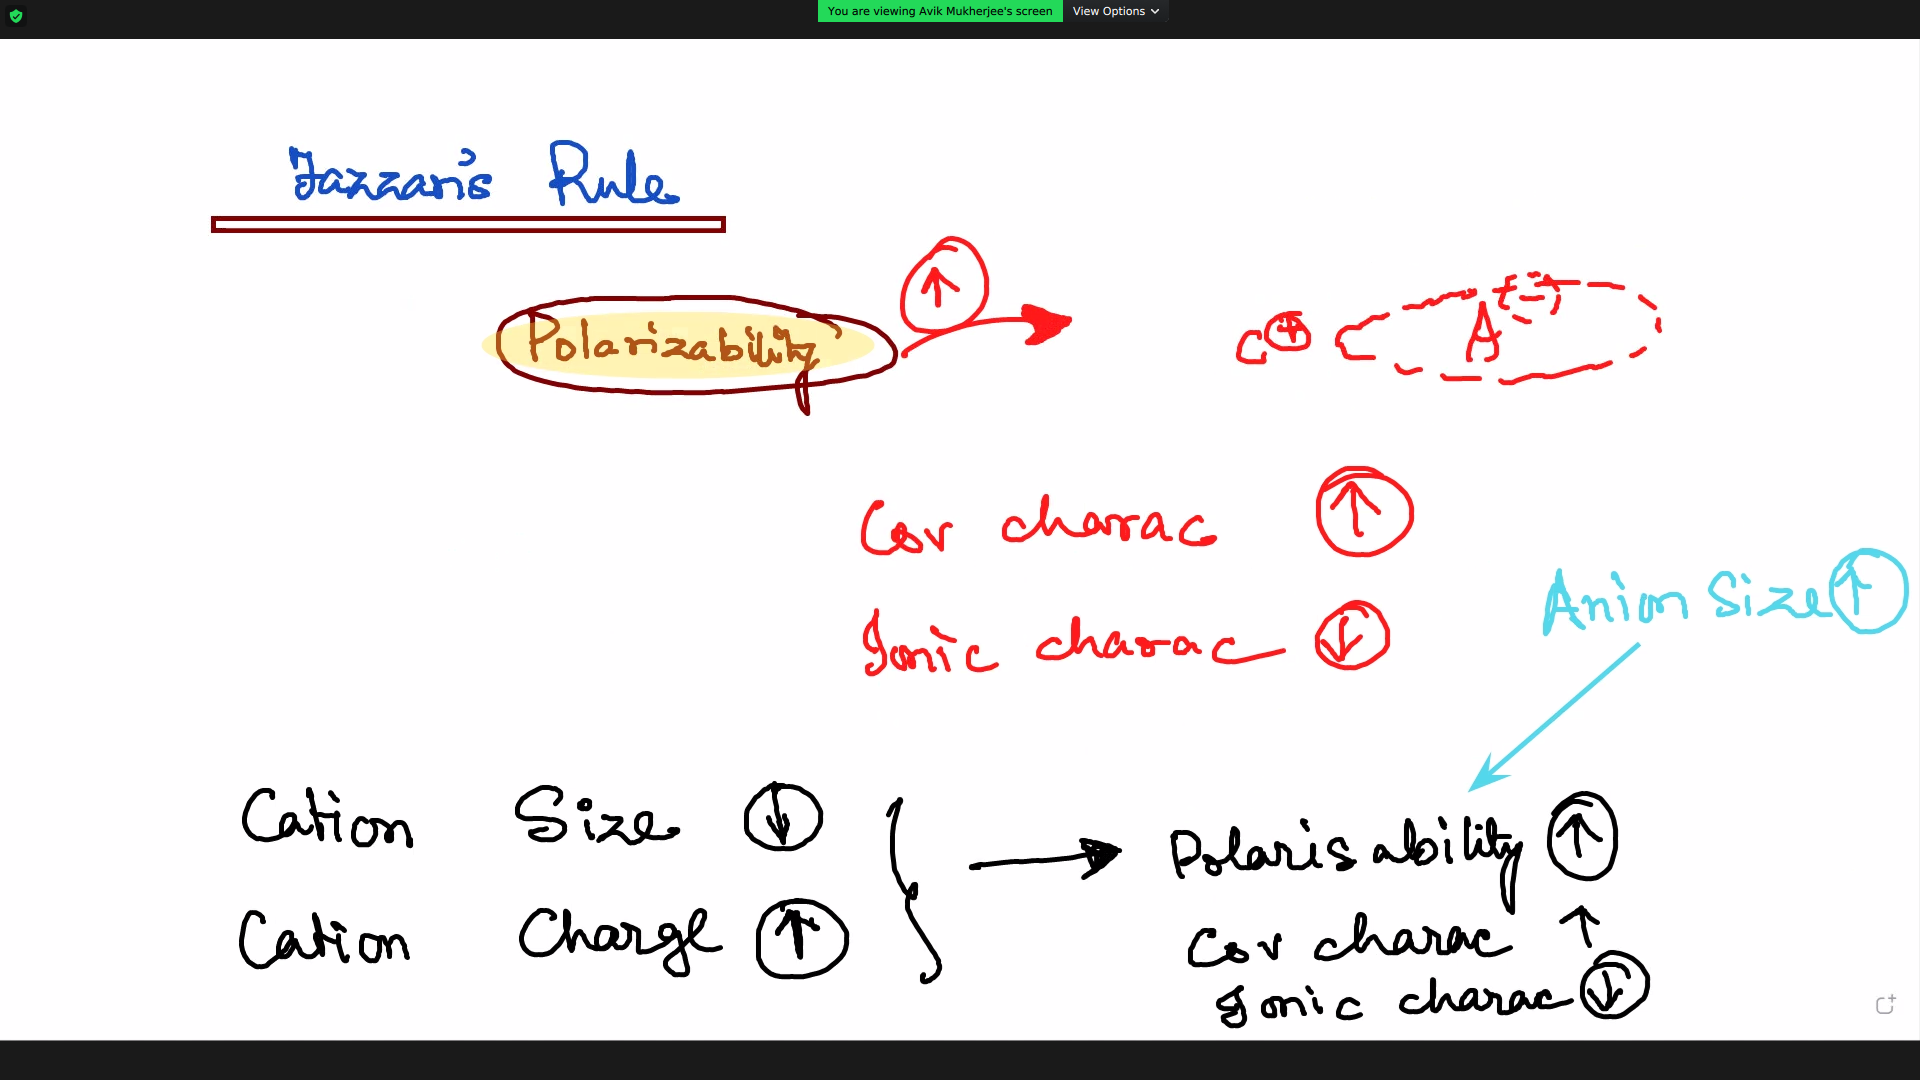 You are viewing Avik Mukherjee's screen View Options
Fazzan's Rule
Polarizability ↑
C+ A-
Cov charac ↑
Ionic charac ↓
Anion Size ↑
Cation Size ↓
Cation Charge ↑
Polarisability ↑
Cov charac ↑
Ionic charac ↓